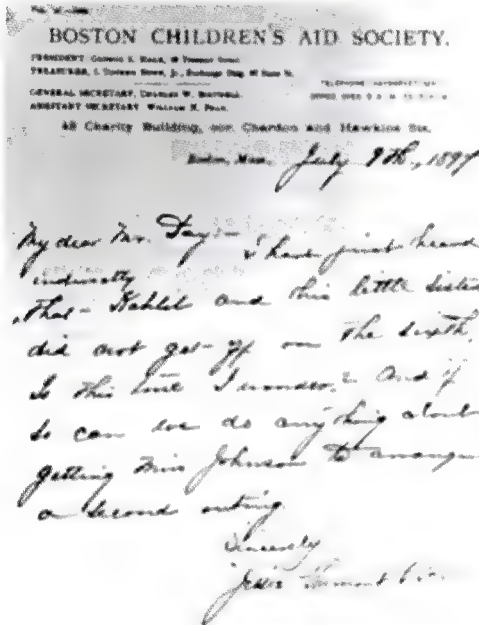 BOSTON CHILDREN'S AID SOCIETY.
PRESIDENT
TREASURER,
GENERAL SECRETARY, CHARLES W. BIRTWELL
ASSISTANT SECRETARY WILLIAM H.
48 Charity Building, cor. Chardon and Hawkins Sts.
Boston, Mass., July 9th, 1897
My dear Mr. Day:- I have just heard
indirectly
that Kahlil and his little sister
did not get off on the sixth.
Is this true I wonder? And if
so can we do anything about
getting Miss Johnson to arrange
a second outing.
Sincerely
Jessie Fremont